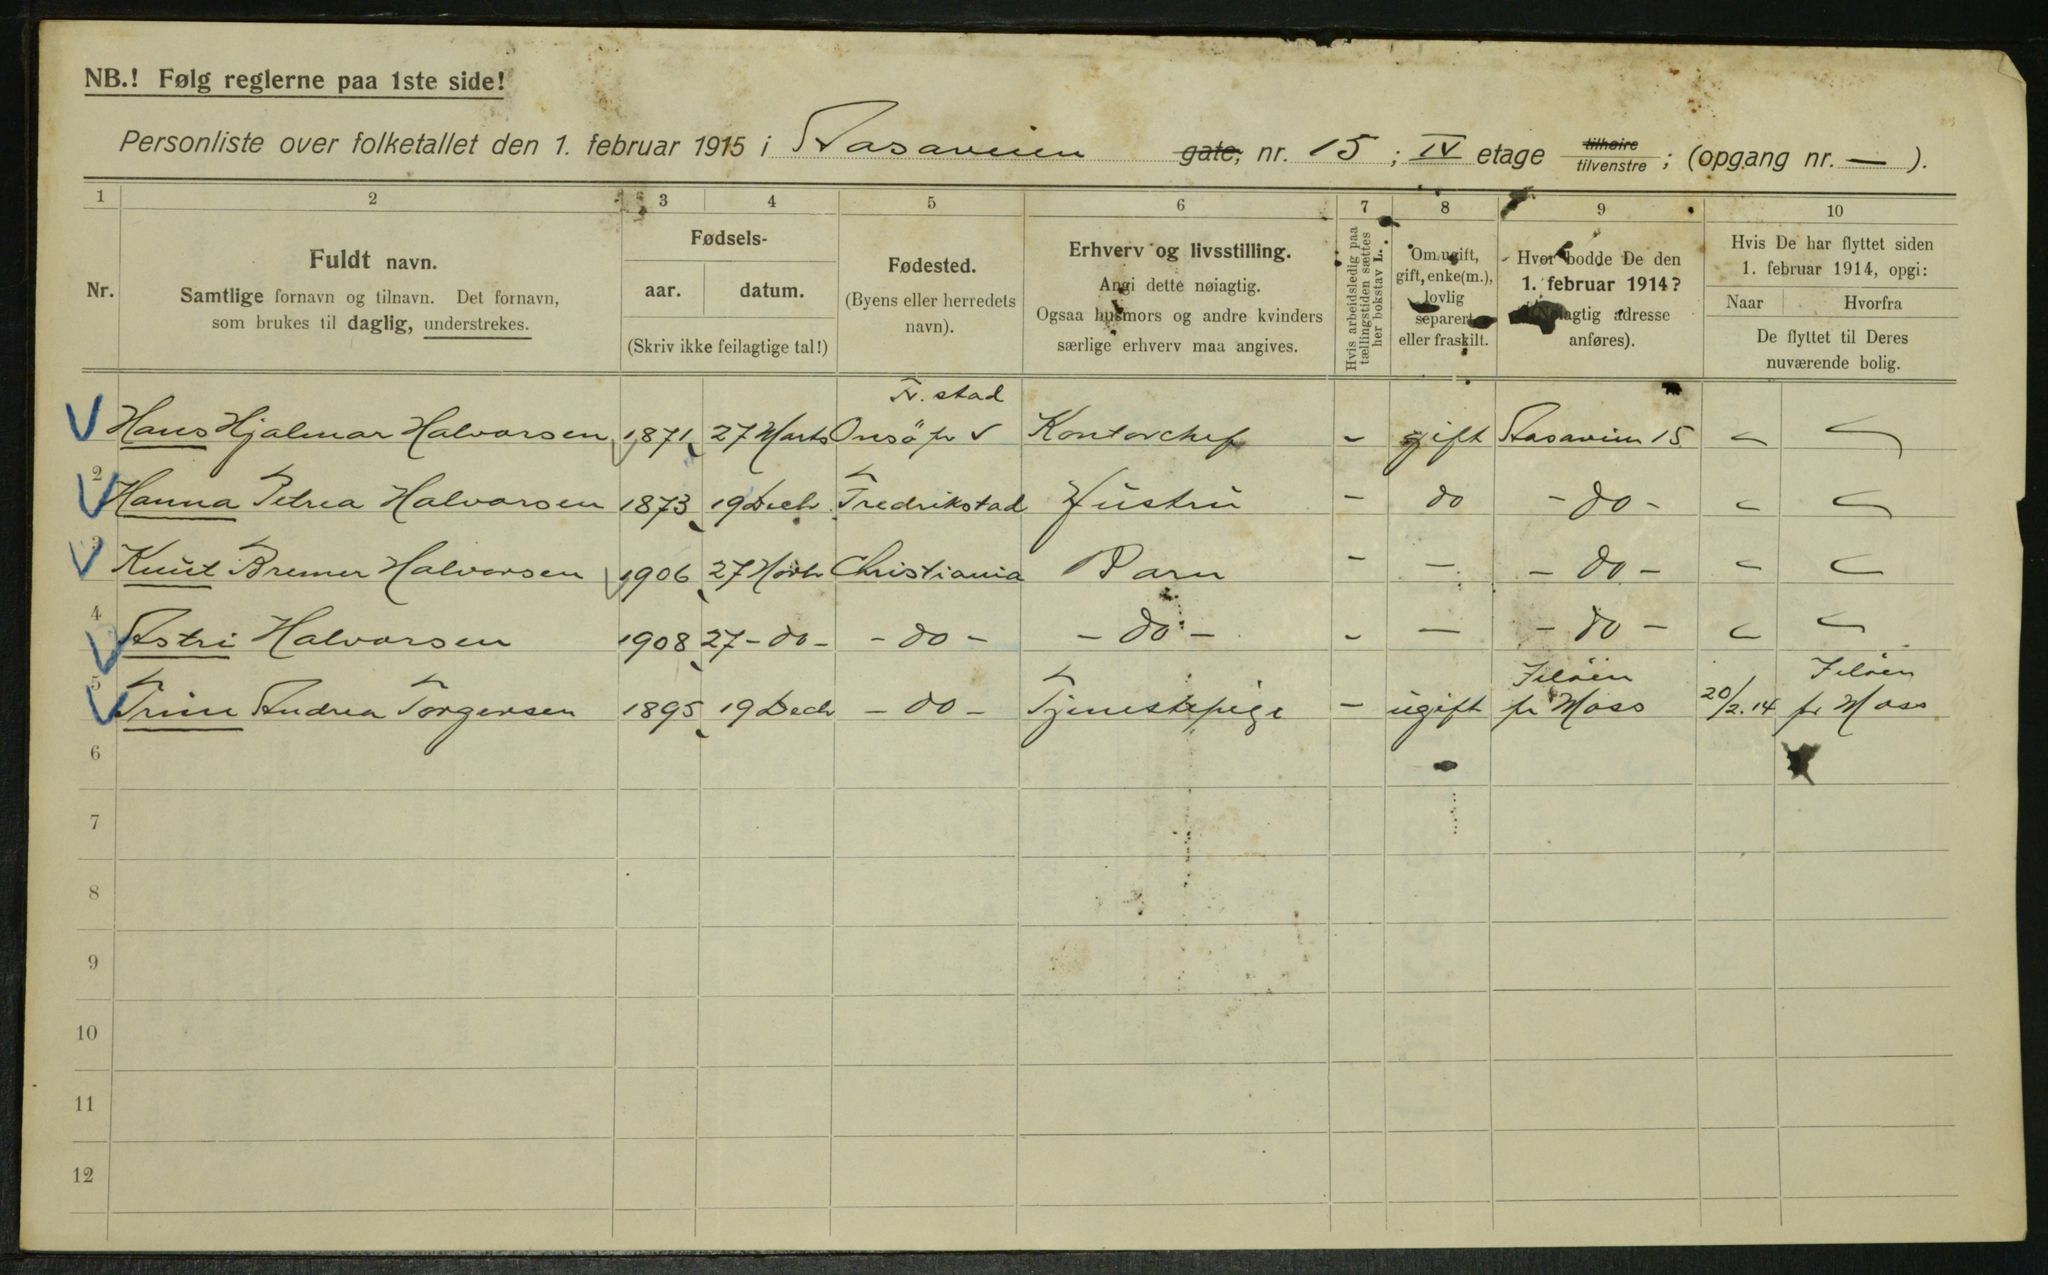 NB.! Følg reglerne paa 1ste side!
Personliste over folketallet den 1. februar 1915 i Aasaveien gate, nr. 15 ; IV etage tilhøire tilvenstre ; (opgang nr. — ).
1 2 3 4 5 6 7 8 9 10
Nr.
Fuldt navn.
Samtlige fornavn og tilnavn. Det fornavn,
som brukes til daglig, understrekes.
Fødsels-
aar. datum.
(Skriv ikke feilagtige tal!)
Fødested.
(Byens eller herredets
navn).
Erhverv og livsstilling.
Angi dette nøiagtig.
Ogsaa husmors og andre kvinders
særlige erhverv maa angives.
Hvis arbeidsledig paa
tællingstiden sættes
her bokstav L.
Om ugift,
gift, enke(m.),
lovlig
separert
eller fraskilt.
Hvor bodde De den
1. februar 1914?
(Nøiagtig adresse
anføres).
Hvis De har flyttet siden
1. februar 1914, opgi:
Naar Hvorfra
De flyttet til Deres
nuværende bolig.
Fr. stad
Hans Hjalmar Halvorsen 1871 27 Marts Onsö pr Kontorchef - gift Aasaveien 15
2 Hanna Petrea Halvorsen 1873 19 Decb Fredrikstad Hustru - do - do -
3 Knut Bremer Halvorsen 1906 27 Novbr Christiania Barn - — - do -
4 Astri Halvorsen 1908 27 - do - - do - - do - - — - do -
Jeløen Jeløen
5 Trine Andrea Torgersen 1895 19 Decb - do - Tjenestepige - ugift pr Moss 20/2.14 pr Moss
6
7
8
9
10
11
12